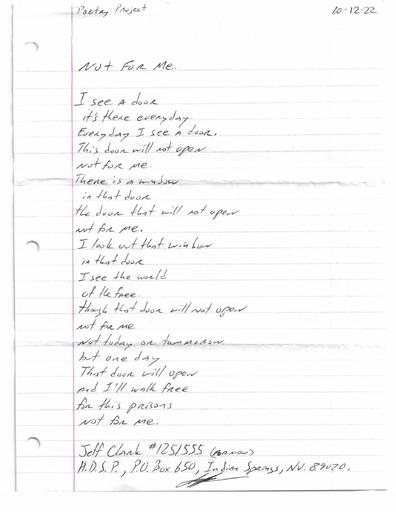 Poetry Project 10-12-22
Not For Me.
I see a door
it's there everyday
Everyday I see a door.
This door will not open
not for me.
There is a window
in that door
the door that will not open
not for me.
I look out that window
in that door
I see the world
of the free
though that door will not open
not for me
Not today or tommorow
but one day
That door will open
and I'll walk free
for this prisons
not for me.
Jeff Clark #1251555
H.D.S.P., P.O. Box 650, Indian Springs, NV. 89070.